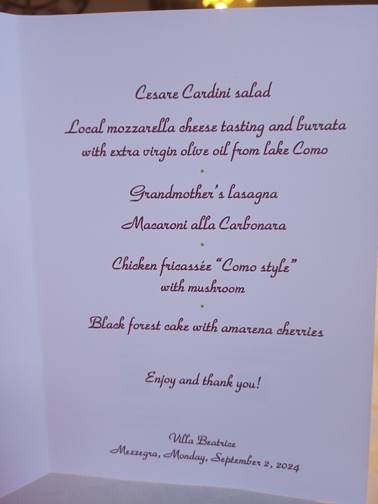 Cesare Cardini salad
Local mozzarella cheese tasting and burrata
with extra virgin olive oil from lake Como
Grandmother's lasagna
Macaroni alla Carbonara
Chicken fricassée "Como style"
with mushroom
Black forest cake with amarena cherries
Enjoy and thank you!
Villa Beatrice
Mezzegra, Monday, September 2, 2024